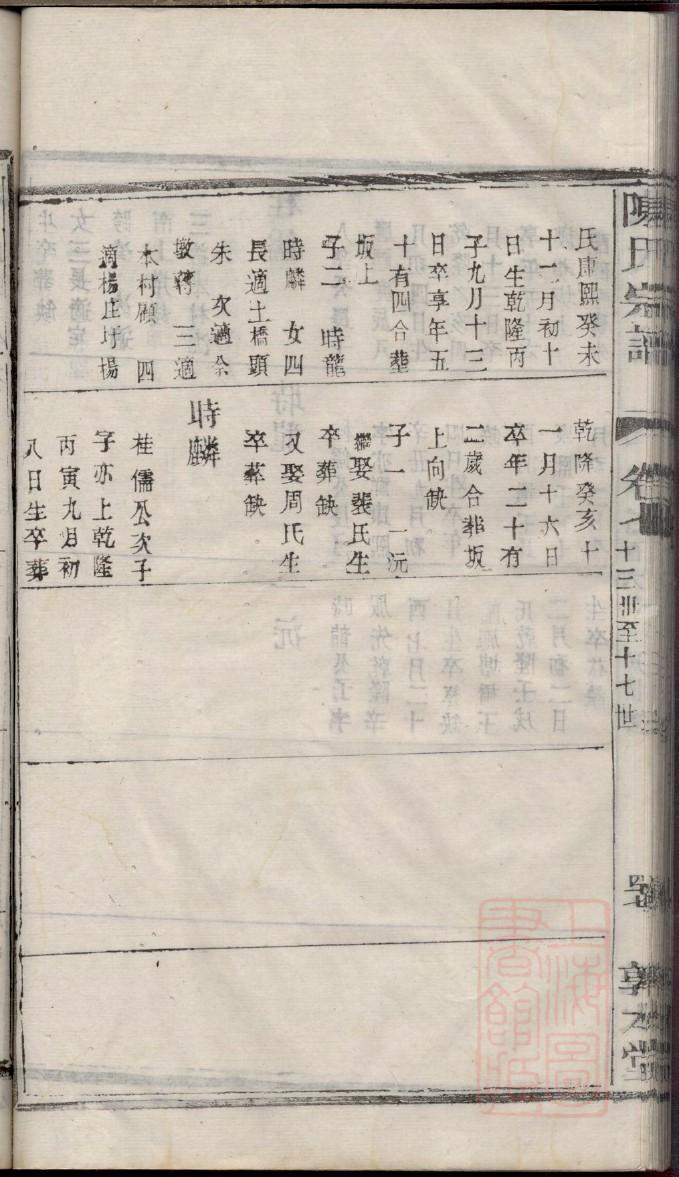 陽氏宗譜
卷七
十三世至十七世
敦
堂
氏康熙癸未
十二月初十
日生乾隆丙
子九月十三
日卒享年五
十有四合葬
坂上
子二 時龍
時麟 女四
長適土橋頭
朱 次適佘
墩蔣 三適
本村顧 四
適楊庄圩楊
乾隆癸亥十
一月十六日
卒年二十有
二歲合葬坂
上向缺
子一 一沅
繼娶裴氏生
卒葬缺
又娶周氏生
卒葬缺
時麟
桂儒公次子
字亦上乾隆
丙寅九月初
八日生卒葬
上海圖書館藏